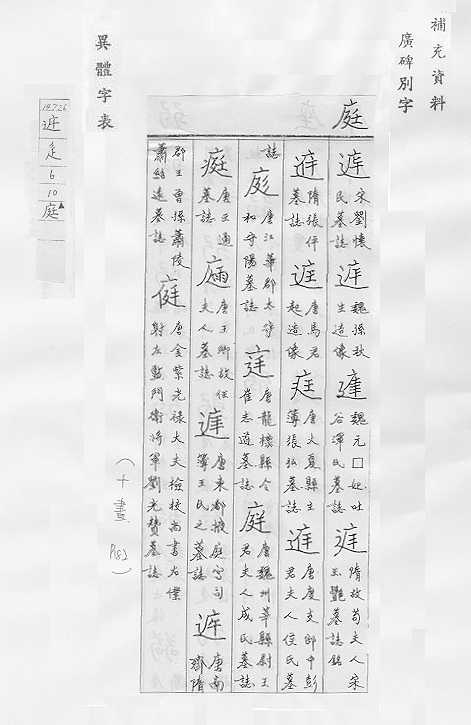 補充資料
廣碑別字
庭
宋劉懷民墓誌
魏孫秋生造像
魏元□妃吐谷渾氏墓誌
隋故苟夫人宋玉艷墓誌銘
隋張伏墓誌
唐馬君起造像
唐大夏縣主簿張弘墓誌
唐度支郎中彭君夫人侯氏墓誌
唐江華郡太守和守陽墓誌
唐龍標縣令崔志道墓誌
唐魏州莘縣尉王君夫人成氏墓誌
庭
唐王通墓誌
唐王卿故任夫人墓誌
唐東都掖庭宮司簿王氏之墓誌
唐南齊隋
郡王曾孫蕭陵蕭紹遠墓誌
唐金紫光祿大夫檢校尚書右僕射左監門衛將軍劉光贊墓誌
（十畫 P183）
異體字表
19.7.26
辵
6
10
庭